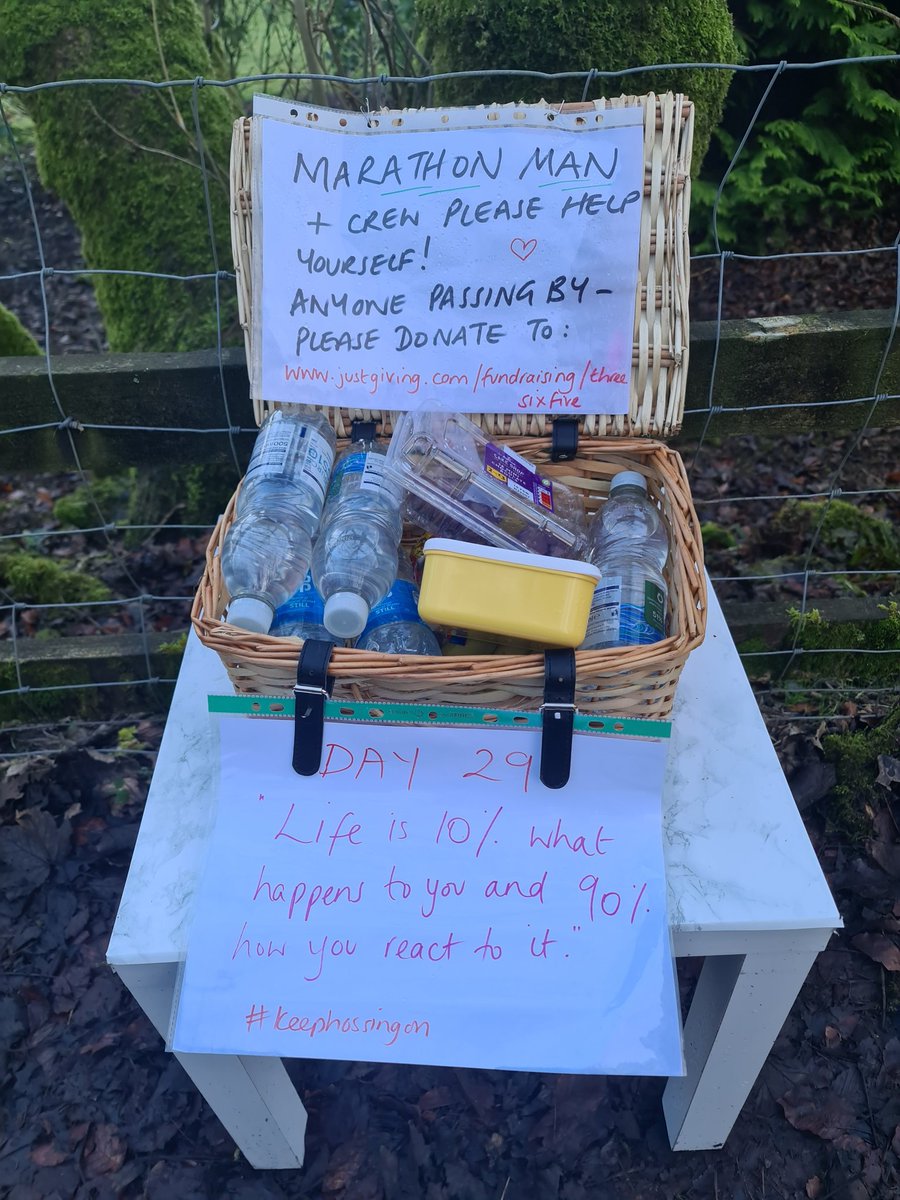 MARATHON MAN
+ CREW PLEASE HELP
YOURSELF!
ANYONE PASSING BY-
PLEASE DONATE TO:
www.justgiving.com/fundraising/three
sixfive
STILL
DAY 29
"Life is 10% what
happens to you and 90%
how you react to it."
#keephossingon